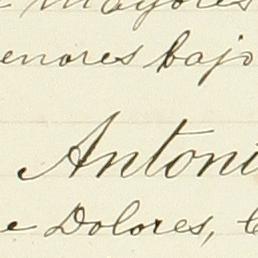 e Mayores
enores bajo
Antoni
e Dolores, C